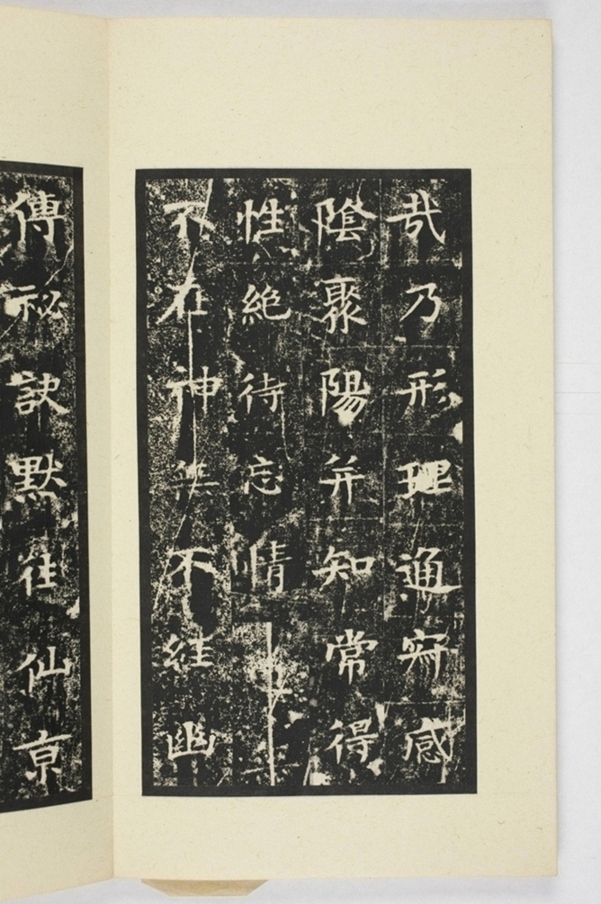 哉乃形理通寂感
陰聚陽并知常得
性絕待忘情
不在神無不經幽
傳祕訣默往仙京